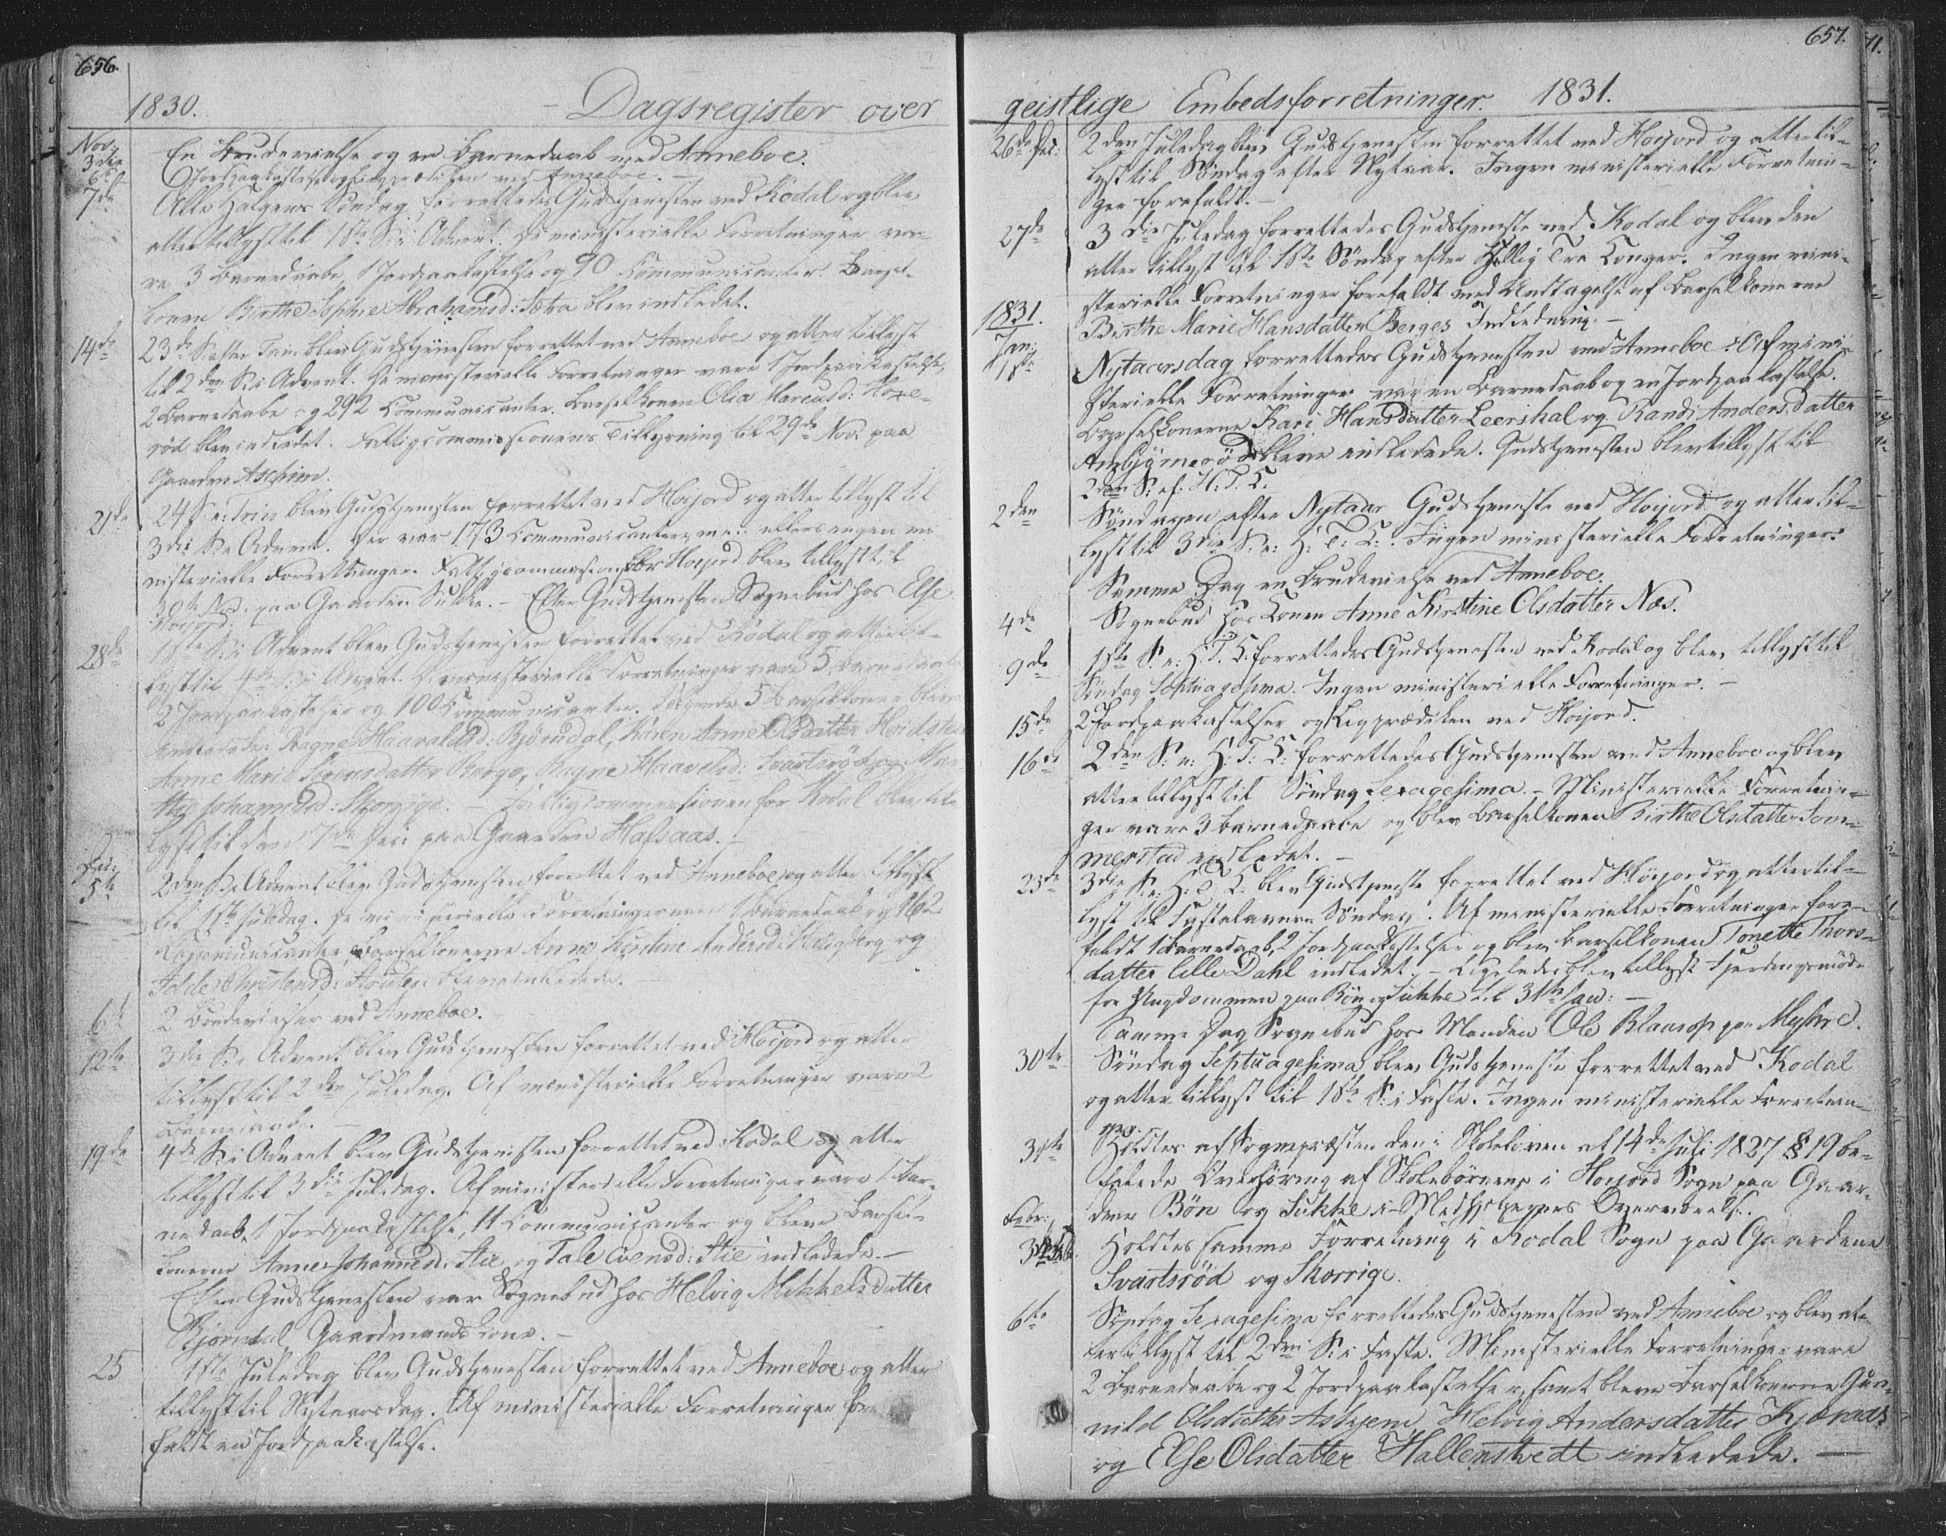 656.
1830. Dagsregister over
Nov. 3die En Brudevielse og en Barnedaab ved Anneboe.
6te Jordpaakastelse og Liigprædiken ved Anneboe. —
7de Alle Helgens Söndag forrettedes Gudstjenesten ved Kodal og blev
atter tillyst til 1ste S. i Advent. De ministerielle Forretninger va-
re 3 Barnedaabe, 1 Jordpaakastelse og 90 Communicanter. Barsel-
konen Birthe Sophie Abrahamsd: Sætra blev indledet.
14de 23de S. efter Trin: blev Gudstjenesten forrettet ved Anneboe og atter tillyst
til 2den S. i Advent. De ministerielle Forretninger vare 1 Jordpaakastelse,
2 Barnedaabe og 292 Communicanter. Barselkonen Olia Marcusd:
röd blev indledet. Fattigcommissionens Tillysning til 29de Nov. paa
Gaarden Aschim.
21de 24 S. e: Trin blev Gudstjenesten forrettet ved Hoijord og atter tillyst til
3die S. i Advent. Der var 173 Communicanter, men ellers ingen mi-
nisterielle Forretninger. Fattigcommissionen for Hoijord blev tillyst til
30te Nov. paa Gaarden Sukke. — Efter Gudstjenesten Sognebud hos Else
Hoijord.
28de 1ste S. i Advent blev Gudstjenesten forrettet ved Kodal og atter til-
lyst til 4de S. i Advent. De ministerielle Forretninger vare 5 Barnedaabe
2 Jordpaakastelser og 100 Communicanter. Følgende 5 Barselkoner bleve
indledede: Ragne Haavaldsd: Bjørndal, Karen Anne Olsdatter
Anne Marie Sörensdatter Berge, Ragne Haavelsd: Svartsröd og Mar-
the Johannesd: Skorrige. — Fattigcommissionen for Kodal blev til-
lyst til den 17de paa Gaarden Halsaas. —
Dec: 5te 2den S. i Advent blev Gudstjenesten forrettet ved Anneboe og atter tillyst
til 1ste Juledag. De ministerielle Forretninger vare 1 Barnedaab og
Communicanter, Barselkonerne Anne Kirstine Andersd: og
Christensd: bleve indledede. —
6te 2 Brudevielser ved Anneboe.
12te 3die S. i Advent blev Gudstjenesten forrettet ved Hoijord og atter
tillyst til 2den Juledag. Af ministerielle Forretninger vare 2
Barnedaab. —
19de 4de S. i Advent blev Gudstjenesten forrettet ved Kodal og atter
tillyst til 3die Juledag. Af ministerielle Forretninger vare 1 Bar-
nedaab, 1 Jordpaakastelse, 11 Communicanter og bleve Barsel-
konerne Anne Johannesd: Stie og Tale Evensd: Stie indledede. —
Efter Gudstjenesten var Sognebud hos Helvig Mikkelsdatter
Bjørndal, Gaardmands Kone. —
25 1ste Juledag blev Gudstjenesten forrettet ved Anneboe og atter
tillyst til Nytaarsdag. Af ministerielle Forretninger fore-
faldt en Jordpaakastelse.
657.
geistlige Embedsforretninger. 1831.
26de Dec: 2den Juledag blev Gudstjenesten forrettet ved Hoijord og atter til-
lyst til Söndag efter Nytaar. Ingen ministerielle Forretnin-
ger forefaldt. —
27de 3die Juledag forrettedes Gudstjeneste ved Kodal og blev den
atter tillyst til 1ste Söndag efter Hellig Tre Konger. Ingen mini-
sterielle Forretninger forefaldt med Undtagelse af Barselkonerne
1831. Birthe Marie Hansdatter Berges Indledning. —
Jan: 1ste Nytaarsdag forrettedes Gudstjenesten ved Anneboe. Af mini-
sterielle Forretninger var en Barnedaab og en Jordpaakastelse.
Barselkonerne Kari Hansdatter Leershal og Randi Andersdatter
Ambjömeröd bleve indledede. Gudstjenesten blev tillyst til
2den S: ef: H. T. K.
2den Söndagen efter Nytaar Gudstjeneste ved Hoijord og atter til-
lyst til 3die S: e: H: T: K: . Ingen ministerielle Forretninger.
Samme Dag en Brudevielse ved Anneboe.
4de Sognebud hos Konen Anne Kirstine Olsdatter Næs.
9de 1ste S. e: H. T. K. forrettedes Gudstjenesten ved Kodal og blev tillyst til
Söndag Septuagesima. Ingen ministerielle Forretninger. —
15de 2 Jordpaakastelser og Liigprædiken ved Hoijord.
16de 2den S: e: H: T: K: forrettedes Gudstjenesten ved Anneboe og blev
atter tillyst til Söndag Sexagesima. — Ministerielle Forretnin-
ger vare 3 Barnedaabe og blev Barselkonen Birthe Olsdatter Som-
merstad indledet. —
23de 3die S: e: H: T. K. blev Gudstjeneste forrettet ved Hoijord og atter til-
lyst til Fastelavns Söndag. Af ministerielle Forretninger fore-
faldt 1 Barnedaab, 2 Jordpaakastelser og blev Barselkonen Tonette Thors-
datter lille Dahl indledet. — Ligeledes blev tillyst Fjerdingsmöde
for Ungdommen paa Bön og Sukke til 31te Jan: —
Samme Dag Sognebud hos Manden Ole paa
30te Söndag Septuagesima blev Gudstjeneste forrettet ved Kodal
og atter tillyst til 1ste S. i Faste. Ingen ministerielle Forretnin-
ger.
31te Holdtes af Sognepræsten den i Skoleloven af 14de Juli 1827 § 19 be-
falede Overhöring af Skolebörnene i Hoijord Sogn paa Gaar-
dene Bön og Sukke i Medhjelpernes Overværelse.
Febr: 3de Holdtes samme Forretning i Kodal Sogn paa Gaardene
Svartsröd og Skorrige.
6te Söndag Sexagesima forrettedes Gudstjenesten ved Anneboe og blev at-
ter tillyst til 2den S. i Faste. Ministerielle Forretninger vare
2 Barnedaabe og 2 Jordpaakastelser, samt bleve Barselkonerne Gun-
nild Olsdatter Askjem, Helvig Andersdatter Kjæraas
og Else Olsdatter Hallenstvedt indledede. —